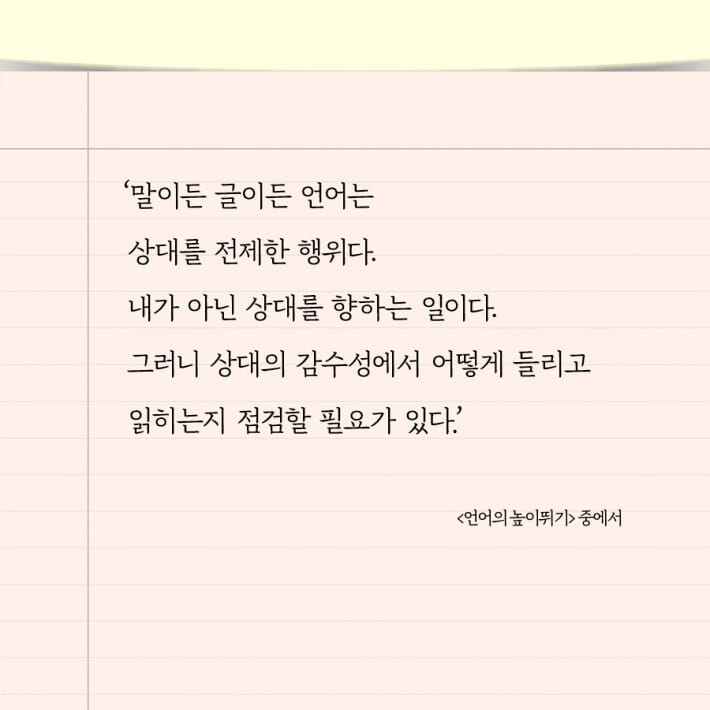 ‘말이든 글이든 언어는
상대를 전제한 행위다.
내가 아닌 상대를 향하는 일이다.
그러니 상대의 감수성에서 어떻게 들리고
읽히는지 점검할 필요가 있다.’
<언어의 높이뛰기> 중에서